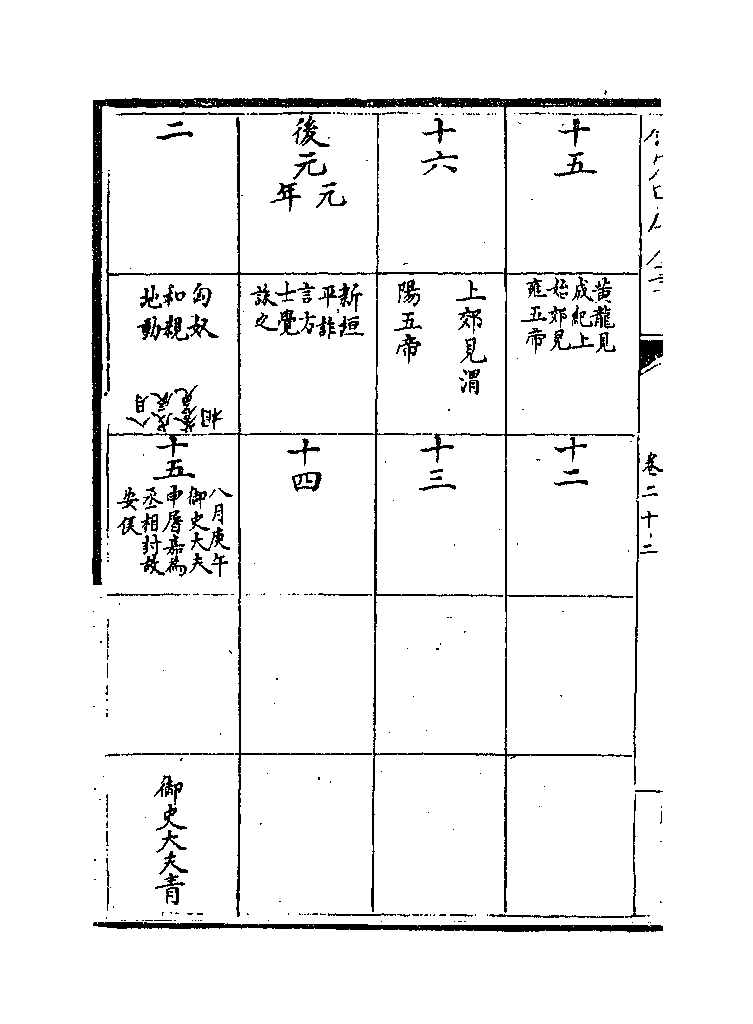 卷二十二
十五
黄龍見
成紀上
始郊見
雍五帝
十二
十六
上郊見渭
陽五帝
十三
後元元年
新垣
平詐
言方
士覺
誅之
十四
二
匈奴
和親
地動
八月
戊辰
蒼免
相
十五
八月庚午
御史大夫
申屠嘉為
丞相封故
安侯
御史大夫青